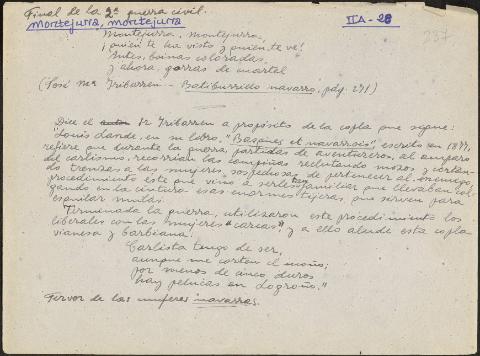 Final de la 2ª guerra civil.
Montejurra, montejurra IIA-28
237
Montejurra, Montejurra,
¡quién te ha visto y quién te ve!
Antes, boinas coloradas,
y ahora, gorras de cuartel
(José Mª Iribarren - Batiburrillo navarro, pág. 271)
Dice el Sr Iribarren a propósito de la copla que sigue:
"Louis Lande, en su libro, "Basques et navarrais", escrito en 1877,
refiere que durante la guerra, partidas de aventureros, al amparo
del carlismo, recorrían las campiñas reclutando mozos y cortan-
do trenzas a las mujeres, sospechosas de pertenecer al enemigo,
procedimiento este que vino a serles tan familiar que llevaban col-
gando en la cintura esas enormes tijeras, que sirven para
esquilar mulas.
Terminada la guerra, utilizaron este procedimiento los
liberales con las mujeres "carcas" y a ello alude esta copla
vianesa y barbiana:
Carlista tengo de ser,
aunque me corten el moño;
por menos de cinco duros
hay pelucas en Logroño."
Fervor de las mujeres navarras.